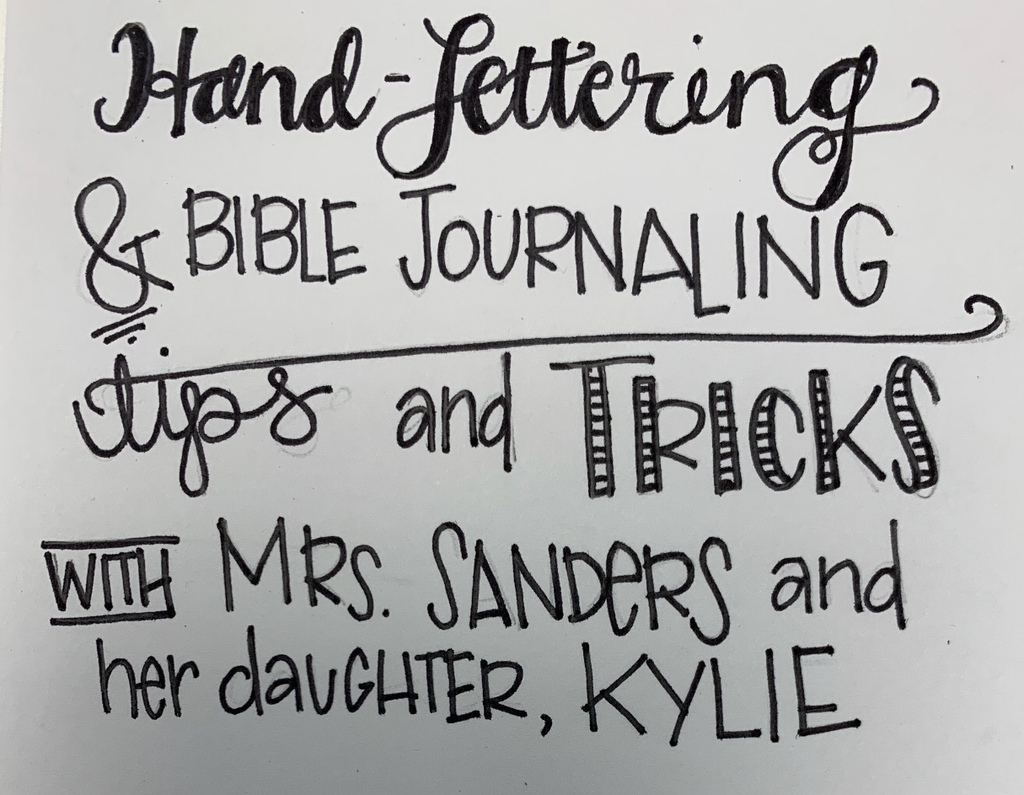 Hand-Lettering
& BIBLE JOURNALING
tips and TRICKS
WITH MRS. SANDERS and
her daUGHTER, KYLIE